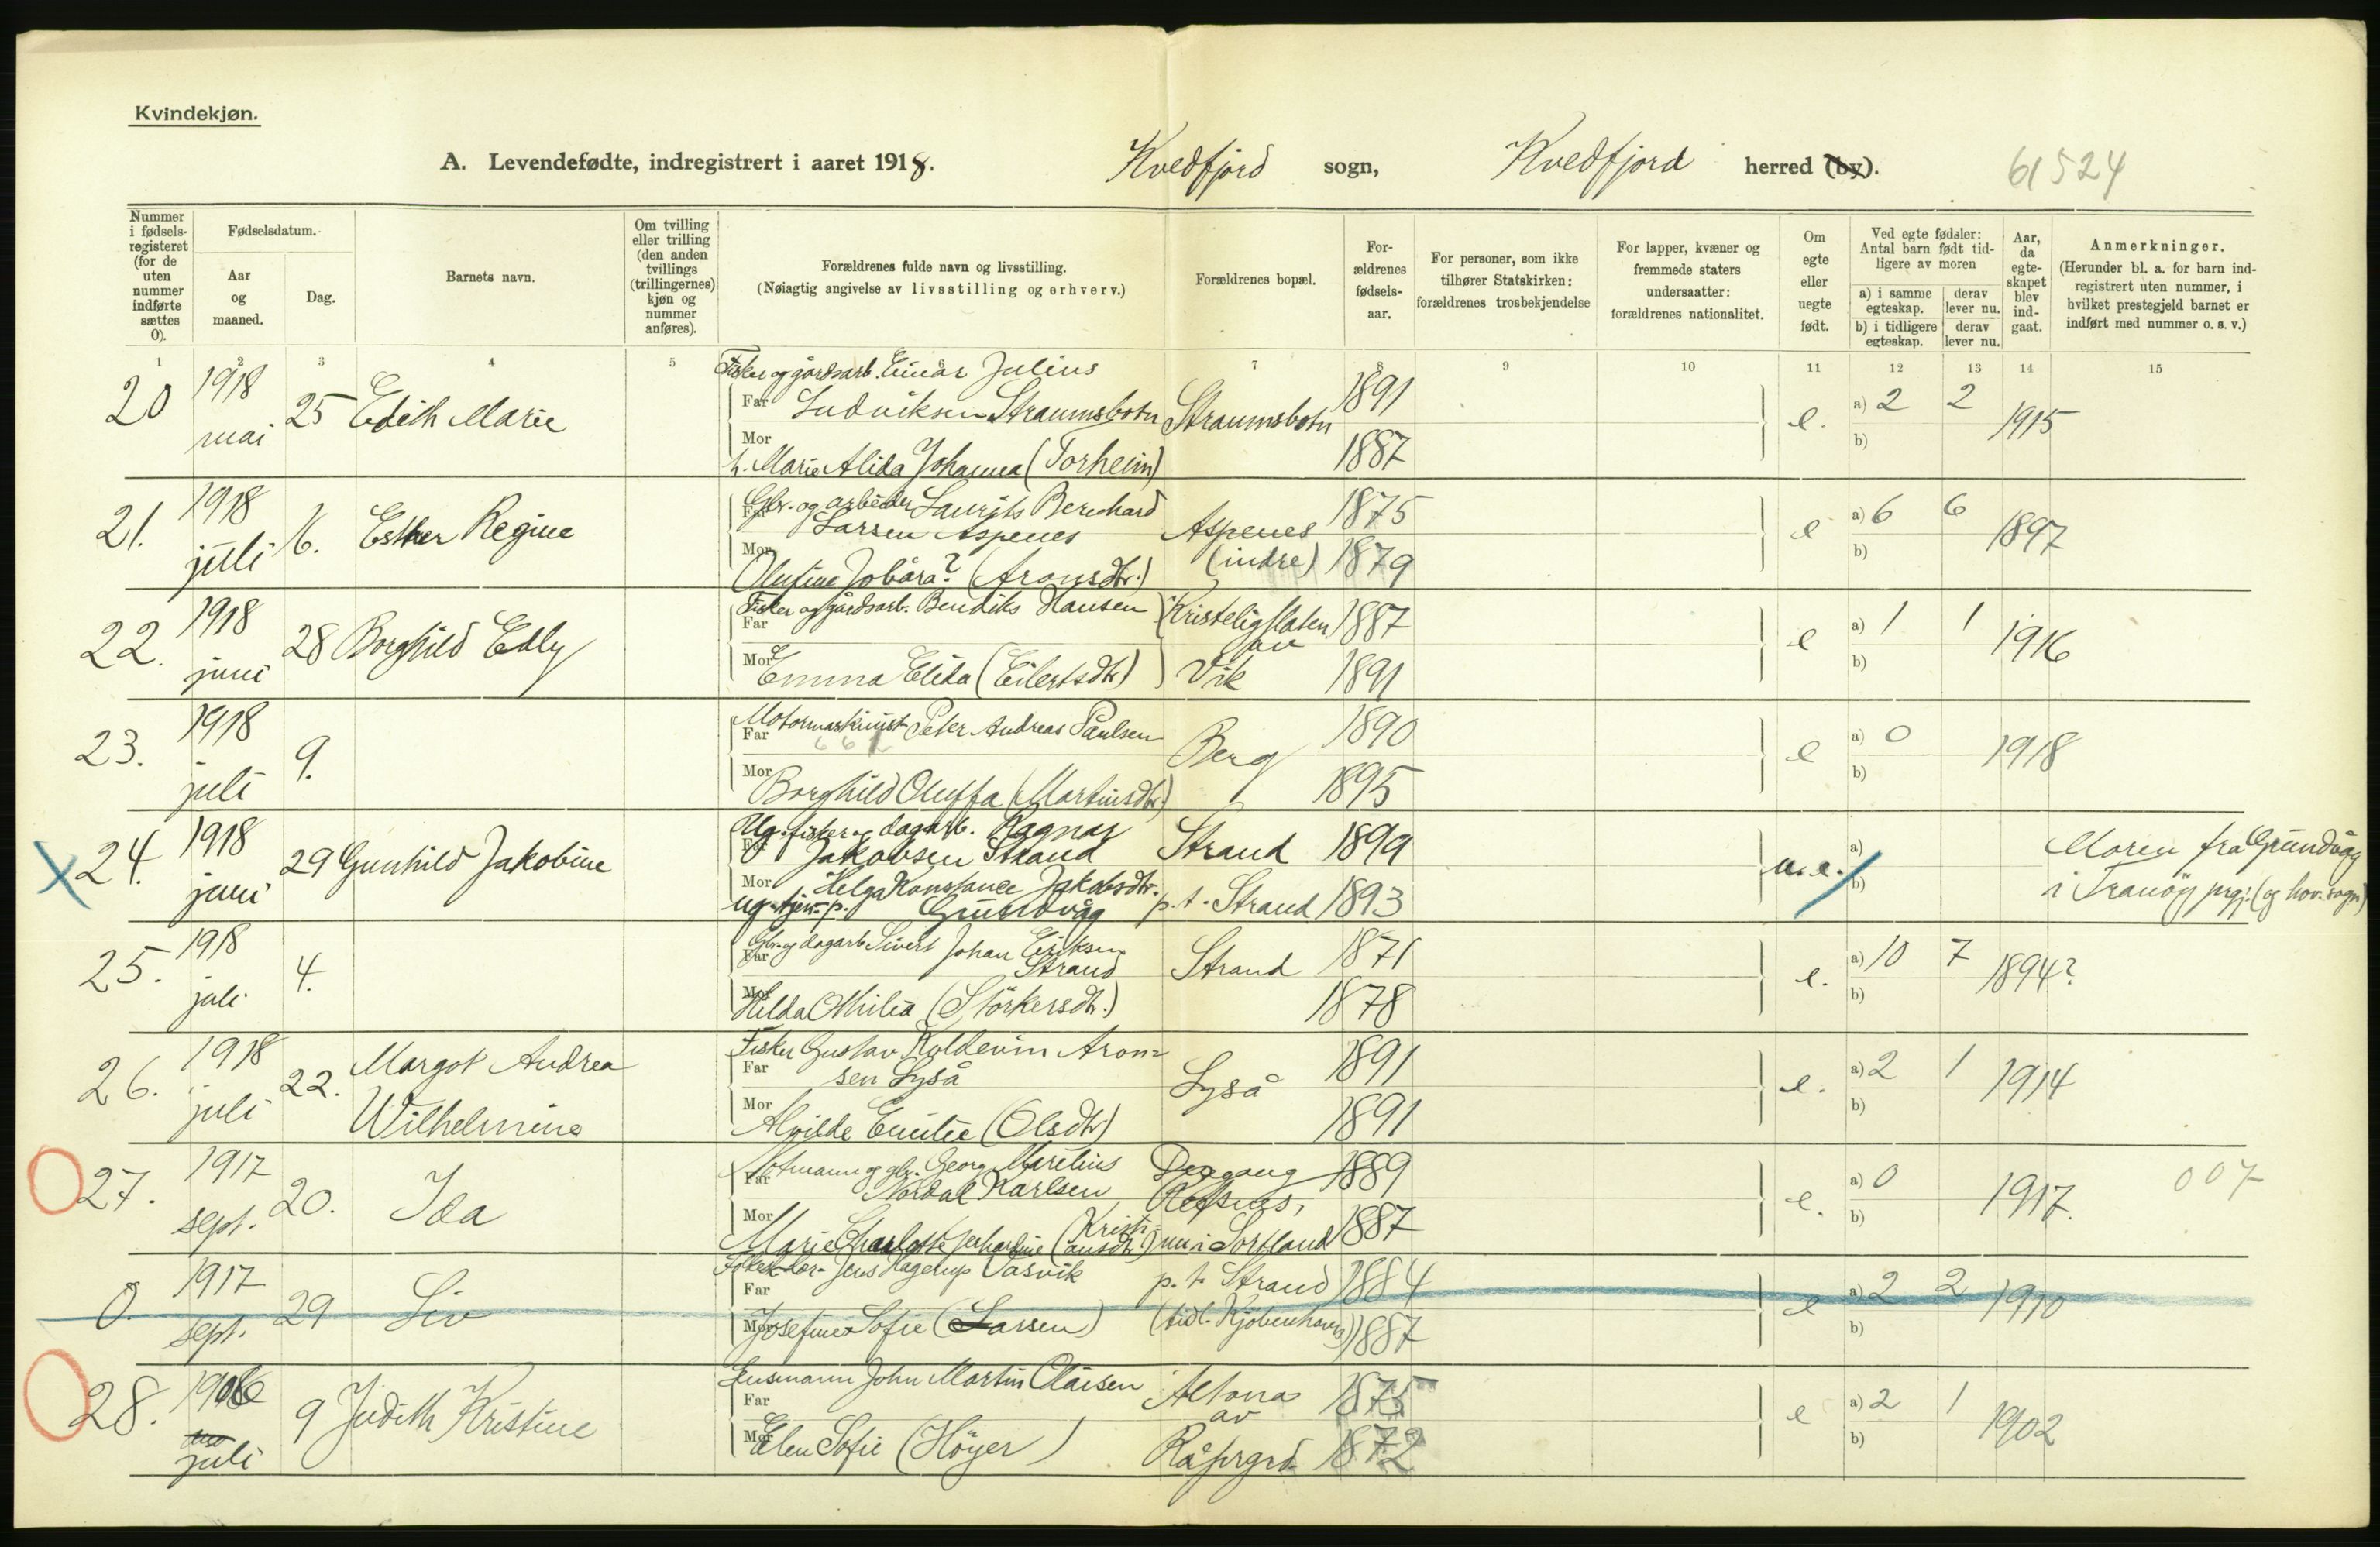 Kvindekjøn.
A. Levendefødte, indregistrert i aaret 1918. Kvedfjord sogn, Kvedfjord herred (by). 61524
Nummer i fødsels-registeret (for de uten nummer indførte sættes 0).
Fødselsdatum.
Aar og maaned.
Dag.
Barnets navn.
Om tvilling eller trilling (den anden tvillings (trillingernes) kjøn og nummer anføres).
Forældrenes fulde navn og livsstilling.
(Nøiagtig angivelse av livsstilling og erhverv.)
Forældrenes bopæl.
For-ældrenes fødsels-aar.
For personer, som ikke tilhører Statskirken: forældrenes trosbekjendelse
For lapper, kvæner og fremmede staters undersaatter: forældrenes nationalitet.
Om egte eller uegte født.
Ved egte fødsler: Antal barn født tid-ligere av moren
a) i samme egteskap. derav lever nu.
b) i tidligere egteskap. derav lever nu.
Aar, da egte-skapet blev ind-gaat.
Anmerkninger.
(Herunder bl. a. for barn ind-registrert uten nummer, i hvilket prestegjeld barnet er indført med nummer o. s. v.)
1 2 3 4 5 6 7 8 9 10 11 12 13 14 15
20 1918 mai 25 Edith Marie
Fisker og gårdsarb. Einar Julius
Far Ludviksen Straumsbotn Straumsbotn 1891
Mor h. Marie Alida Johanna (Torheim) 1887
e. a) 2 2 b) 1915
21. 1918 juli 16. Esther Regine
Far Gbr. og arbeider Laurits Bernhard
Larsen Aspenes Aspenes (indre) 1875
Mor Olufine Jobåra? (Aronsdtr.) 1879
e a) 6 6 b) 1897
22. 1918 juni 28 Borghild Edly
Far Fisker og gårdsarb. Bendiks Hansen Kristeligflaten av Vik 1887
Mor Emma Elida (Eilertsdtr) 1891
e a) 1 1 b) 1916
23. 1918 juli 9.
Far Motormaskinist Peter Andreas Paulsen Berg 1890
Mor Borghild Oluffa (Martinsdtr.) 1895
e a) 0 b) 1918
X 24. 1918 juni 29 Gunhild Jakobine
Far Ug. fisker og dagarb. Ragnar
Jakobsen Strand Strand 1899
Mor Helga Konstance Jakobsdtr.
ug. tjen. p. Grundvåg p.t. Strand 1893
u.e. a) b)
Moren fra Grundvåg
i Tranöy prgj. (og hov. sogn)
25. 1918 juli 4.
Far Gbr. og dagarb. Sivert Johan Eriksen
Strand Strand 1871
Mor Hilda Othilia (Störkersdtr.) 1878
e. a) 10 7 b) 1894?
26. 1918 juli 22. Margot Andrea
Wilhelmine
Fisker Gustav Koldevin Aron-
Far sen Lyså Lyså 1891
Mor Alvilde Emilie (Olsdtr) 1891
e. a) 2 1 b) 1914
27. 1917 sept. 20. Ida
Far Notmann og gbr. Georg Marelius
Nordal Karlsen, Refsnes, 1889
Mor Marie Charlotte Gerhardine (Kristi-
ansdtr.) nu i Sortland 1887
e. a) 0 b) 1917. 007
0. 1917 sept. 29 Liv
Far Jens Hagerup Vasvik p. t. Strand 1884
Mor Josefine Sofie (Larsen) (tidl. Kjöbenhavn) 1887
e a) 2 2 b) 1910
28. juli 9 Judith Kristine
Far Lensmann John Martin Olaisen Altona av 1875
Mor Elen Sofie (Höyer) 1872
e a) 2 1 b) 1902